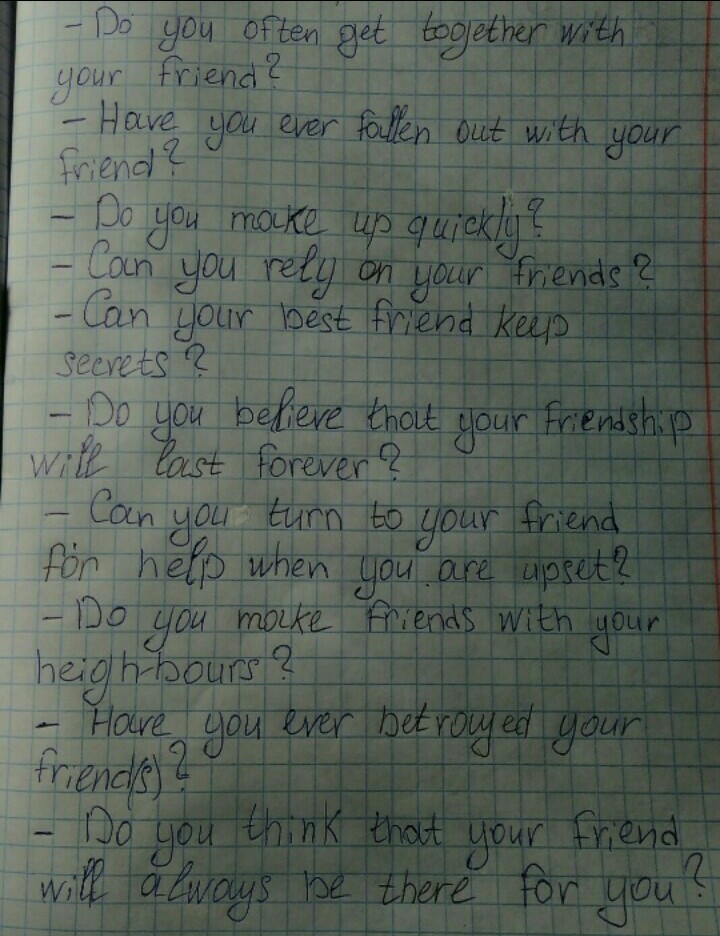 - Do you often get together with
your friend?
- Have you ever fallen out with your
friend?
- Do you make up quickly?
- Can you rely on your friends?
- Can your best friend keep
secrets?
- Do you believe that your friendship
will last forever?
- Can you turn to your friend
for help when you are upset?
- Do you make friends with your
neigh-bours?
- Have you ever betrayed your
friend(s)?
- Do you think that your friend
will always be there for you?